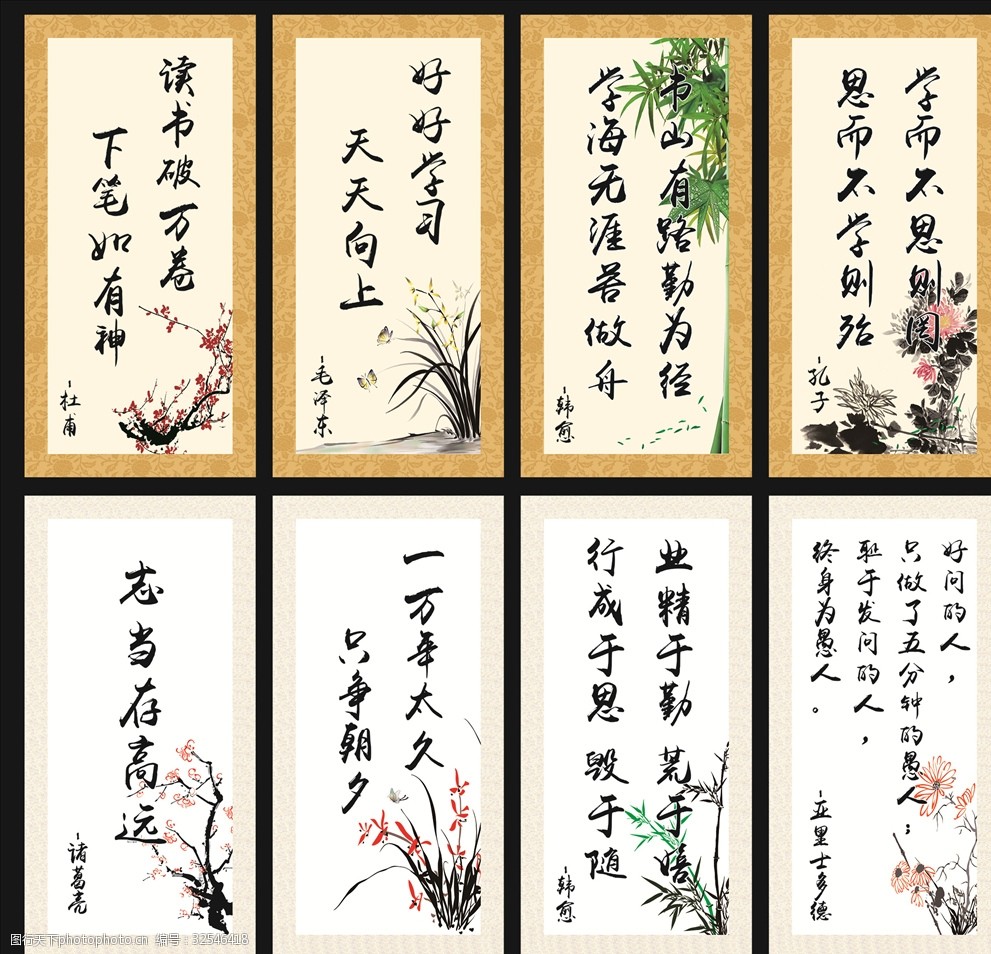 读书破万卷
下笔如有神
-杜甫
好好学习
天天向上
-毛泽东
书山有路勤为径
学海无涯苦做舟
-韩愈
学而不思则罔
思而不学则殆
-孔子
志当存高远
-诸葛亮
一万年太久
只争朝夕
业精于勤 荒于嬉
行成于思 毁于随
-韩愈
好问的人，
只做了五分钟的愚人；
耻于发问的人，
终身为愚人。
-亚里士多德
图行天下photophoto.cn 编号：32546418